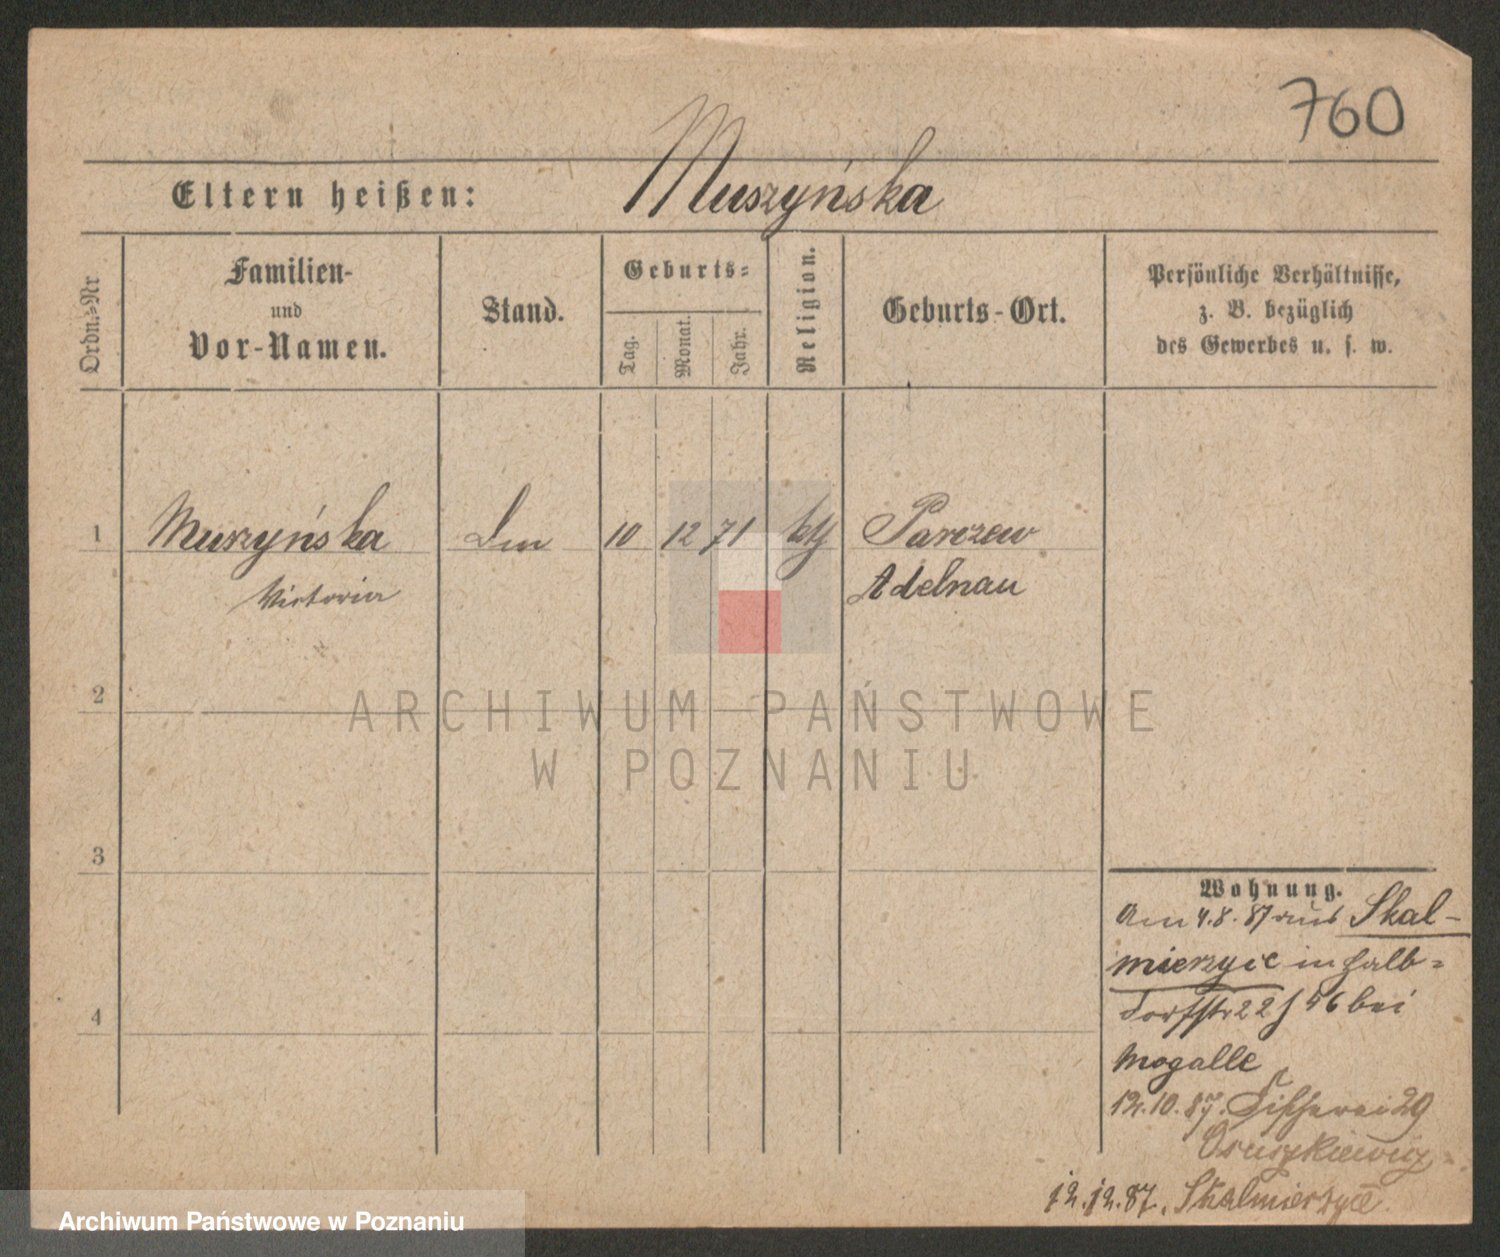 760
Eltern heißen: Muszyńska
Ordn.=Nr
Familien-
und
Vor-Namen.
Stand.
Geburts=
Tag.
Monat.
Jahr.
Religion.
Geburts-Ort.
Persönliche Verhältnisse,
z. B. bezüglich
des Gewerbes u. s. w.
1 Muszyńska 10 12 71 kth Parczew
Victoria Adelnau
2
3
4
Wohnung.
Am 4.8.87 aus Skal-
mierzyce in Halb=
dorfstr 22 / 56 bei
Mogalle
12.10.87. Fischerei 29
12.12.87. Skalmierzyce.
ARCHIWUM PAŃSTWOWE
W POZNANIU
Archiwum Państwowe w Poznaniu